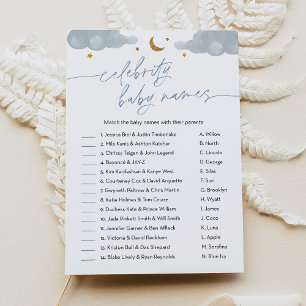 celebrity
baby names
Match the baby names with their parents
1. Jessica Biel & Justin Timberlake A. Willow
2. Mila Kunis & Ashton Kutcher B. North
3. Chrissy Teigen & John Legend C. Lincoln
4. Beyoncé & JAY-Z D. George
5. Kim Kardashian & Kanye West E. Silas
6. Courteney Cox & David Arquette F. Suri
7. Gwyneth Paltrow & Chris Martin G. Brooklyn
8. Katie Holmes & Tom Cruise H. Wyatt
9. Duchess Kate & Prince William I. James
10. Jada Pinkett Smith & Will Smith J. Coco
11. Jennifer Garner & Ben Affleck K. Luna
12. Victoria & David Beckham L. Apple
13. Kristen Bell & Dax Shepard M. Serafina
14. Blake Lively & Ryan Reynolds N. Blue Ivy